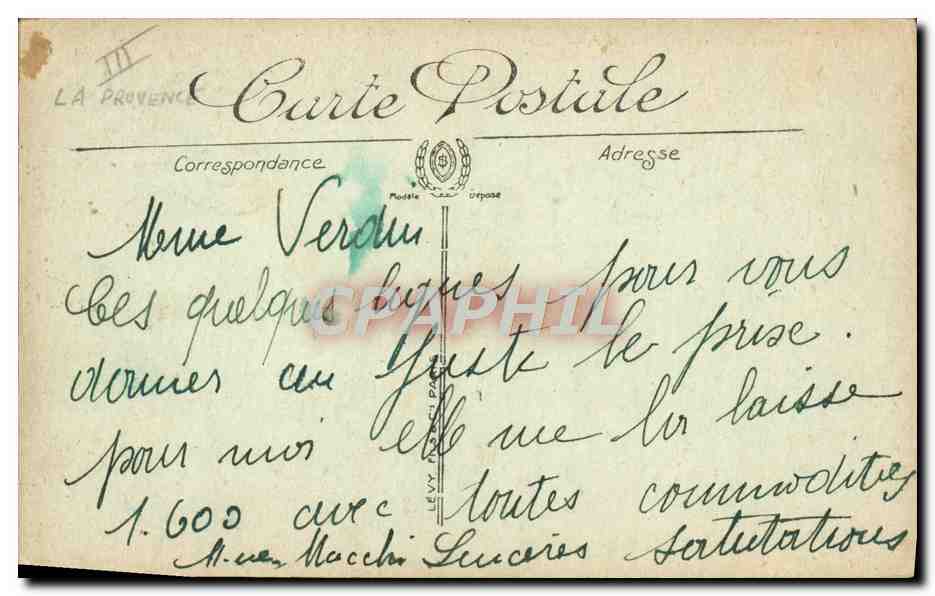 III
LA PROVENCE
Carte Postale
Correspondance
Adresse
Modèle Déposé
Mme Verdun
Ces quelques lignes pour vous
donner au juste le prise.
pour moi elle me la laisse
1.600 avec toutes commodites
Macchi Sinceres satutations
LÉVY FILS & Cie PARIS
CPAPHIL